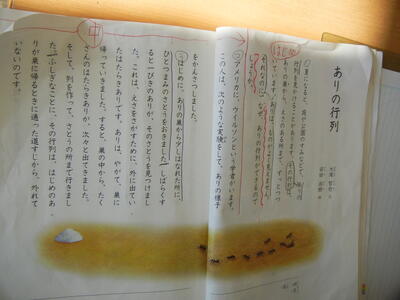 ありの行列
大滝 哲也 文
①夏になると、庭や公園のすみなどで、ありの
行列を見かけることがあります。その行列は、
ありの巣から、えさのある所まで、ずっとつづ
いています。ありは、ものがよく見えません。
それなのに、なぜ、ありの行列ができるので
しょうか。
②アメリカに、ウイルソンという学者がいます。
この人は、次のような実験をして、ありの様子
はじめ
中
をかんさつしました。
③はじめに、ありの巣から少しはなれた所に、
ひとつまみのさとうをおきました。しばらくす
ると、一ぴきのありが、そのさとうを見つけまし
た。これは、えさをさがすために、外に出てい
たはたらきありです。ありは、やがて、巣に
帰っていきました。すると、巣の中から、たく
さんのはたらきありが、次々と出てきました。
そして、列を作って、さとうの所まで行きまし
た。ふしぎなことに、その行列は、はじめのあ
りが巣に帰るときに通った道すじから、外れて
いないのです。